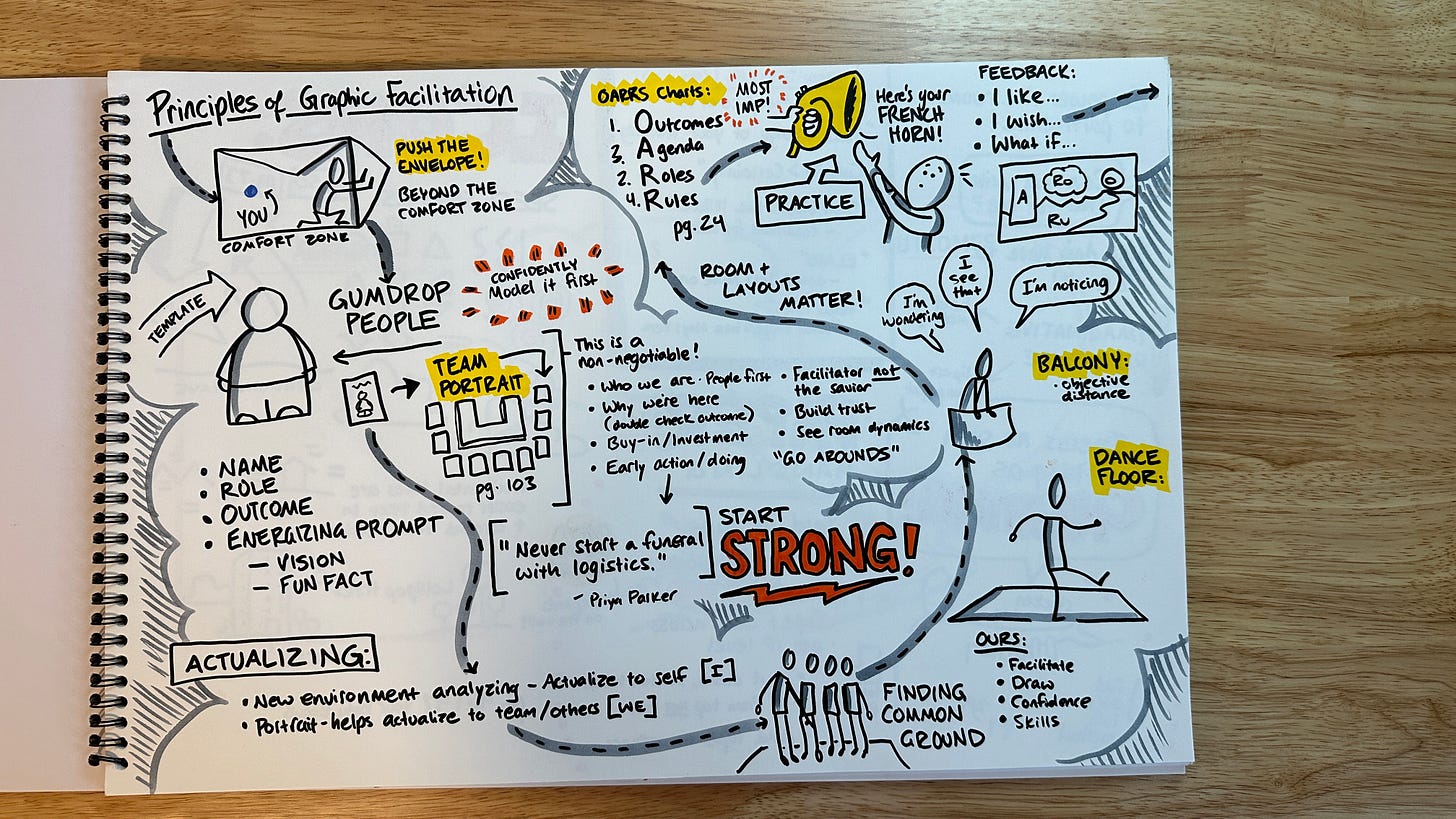 Principles of Graphic Facilitation
PUSH THE
ENVELOPE!
BEYOND THE
COMFORT ZONE
YOU
COMFORT ZONE
TEMPLATE
GUMDROP
PEOPLE
CONFIDENTLY
Model it first
TEAM
PORTRAIT
pg. 103
• NAME
• ROLE
• OUTCOME
• ENERGIZING PROMPT
— VISION
— FUN FACT
This is a
non-negotiable!
• Who we are · People first
• Why we're here
(double check outcome)
• Buy-in/Investment
• Early action/doing
• Facilitator not
the savior
• Build trust
• See room dynamics
"GO AROUNDS"
["Never start a funeral
with logistics."]
- Priya Parker
START
STRONG!
ACTUALIZING:
• New environment analyzing - Actualize to self [I]
• Portrait - helps actualize to team/others [WE]
FINDING
COMMON
GROUND
OARRS Charts:
MOST
IMP!
1. Outcomes
3. Agenda
2. Roles
4. Rules
pg. 24
PRACTICE
Here's your
FRENCH
HORN!
FEEDBACK:
• I like...
• I wish...
• What if...
A
Ro
O
Ru
ROOM +
LAYOUTS
MATTER!
I'm
wondering
I
see
that
I'm noticing
BALCONY:
• objective
distance
DANCE
FLOOR:
OURS:
• Facilitate
• Draw
• Confidence
• Skills